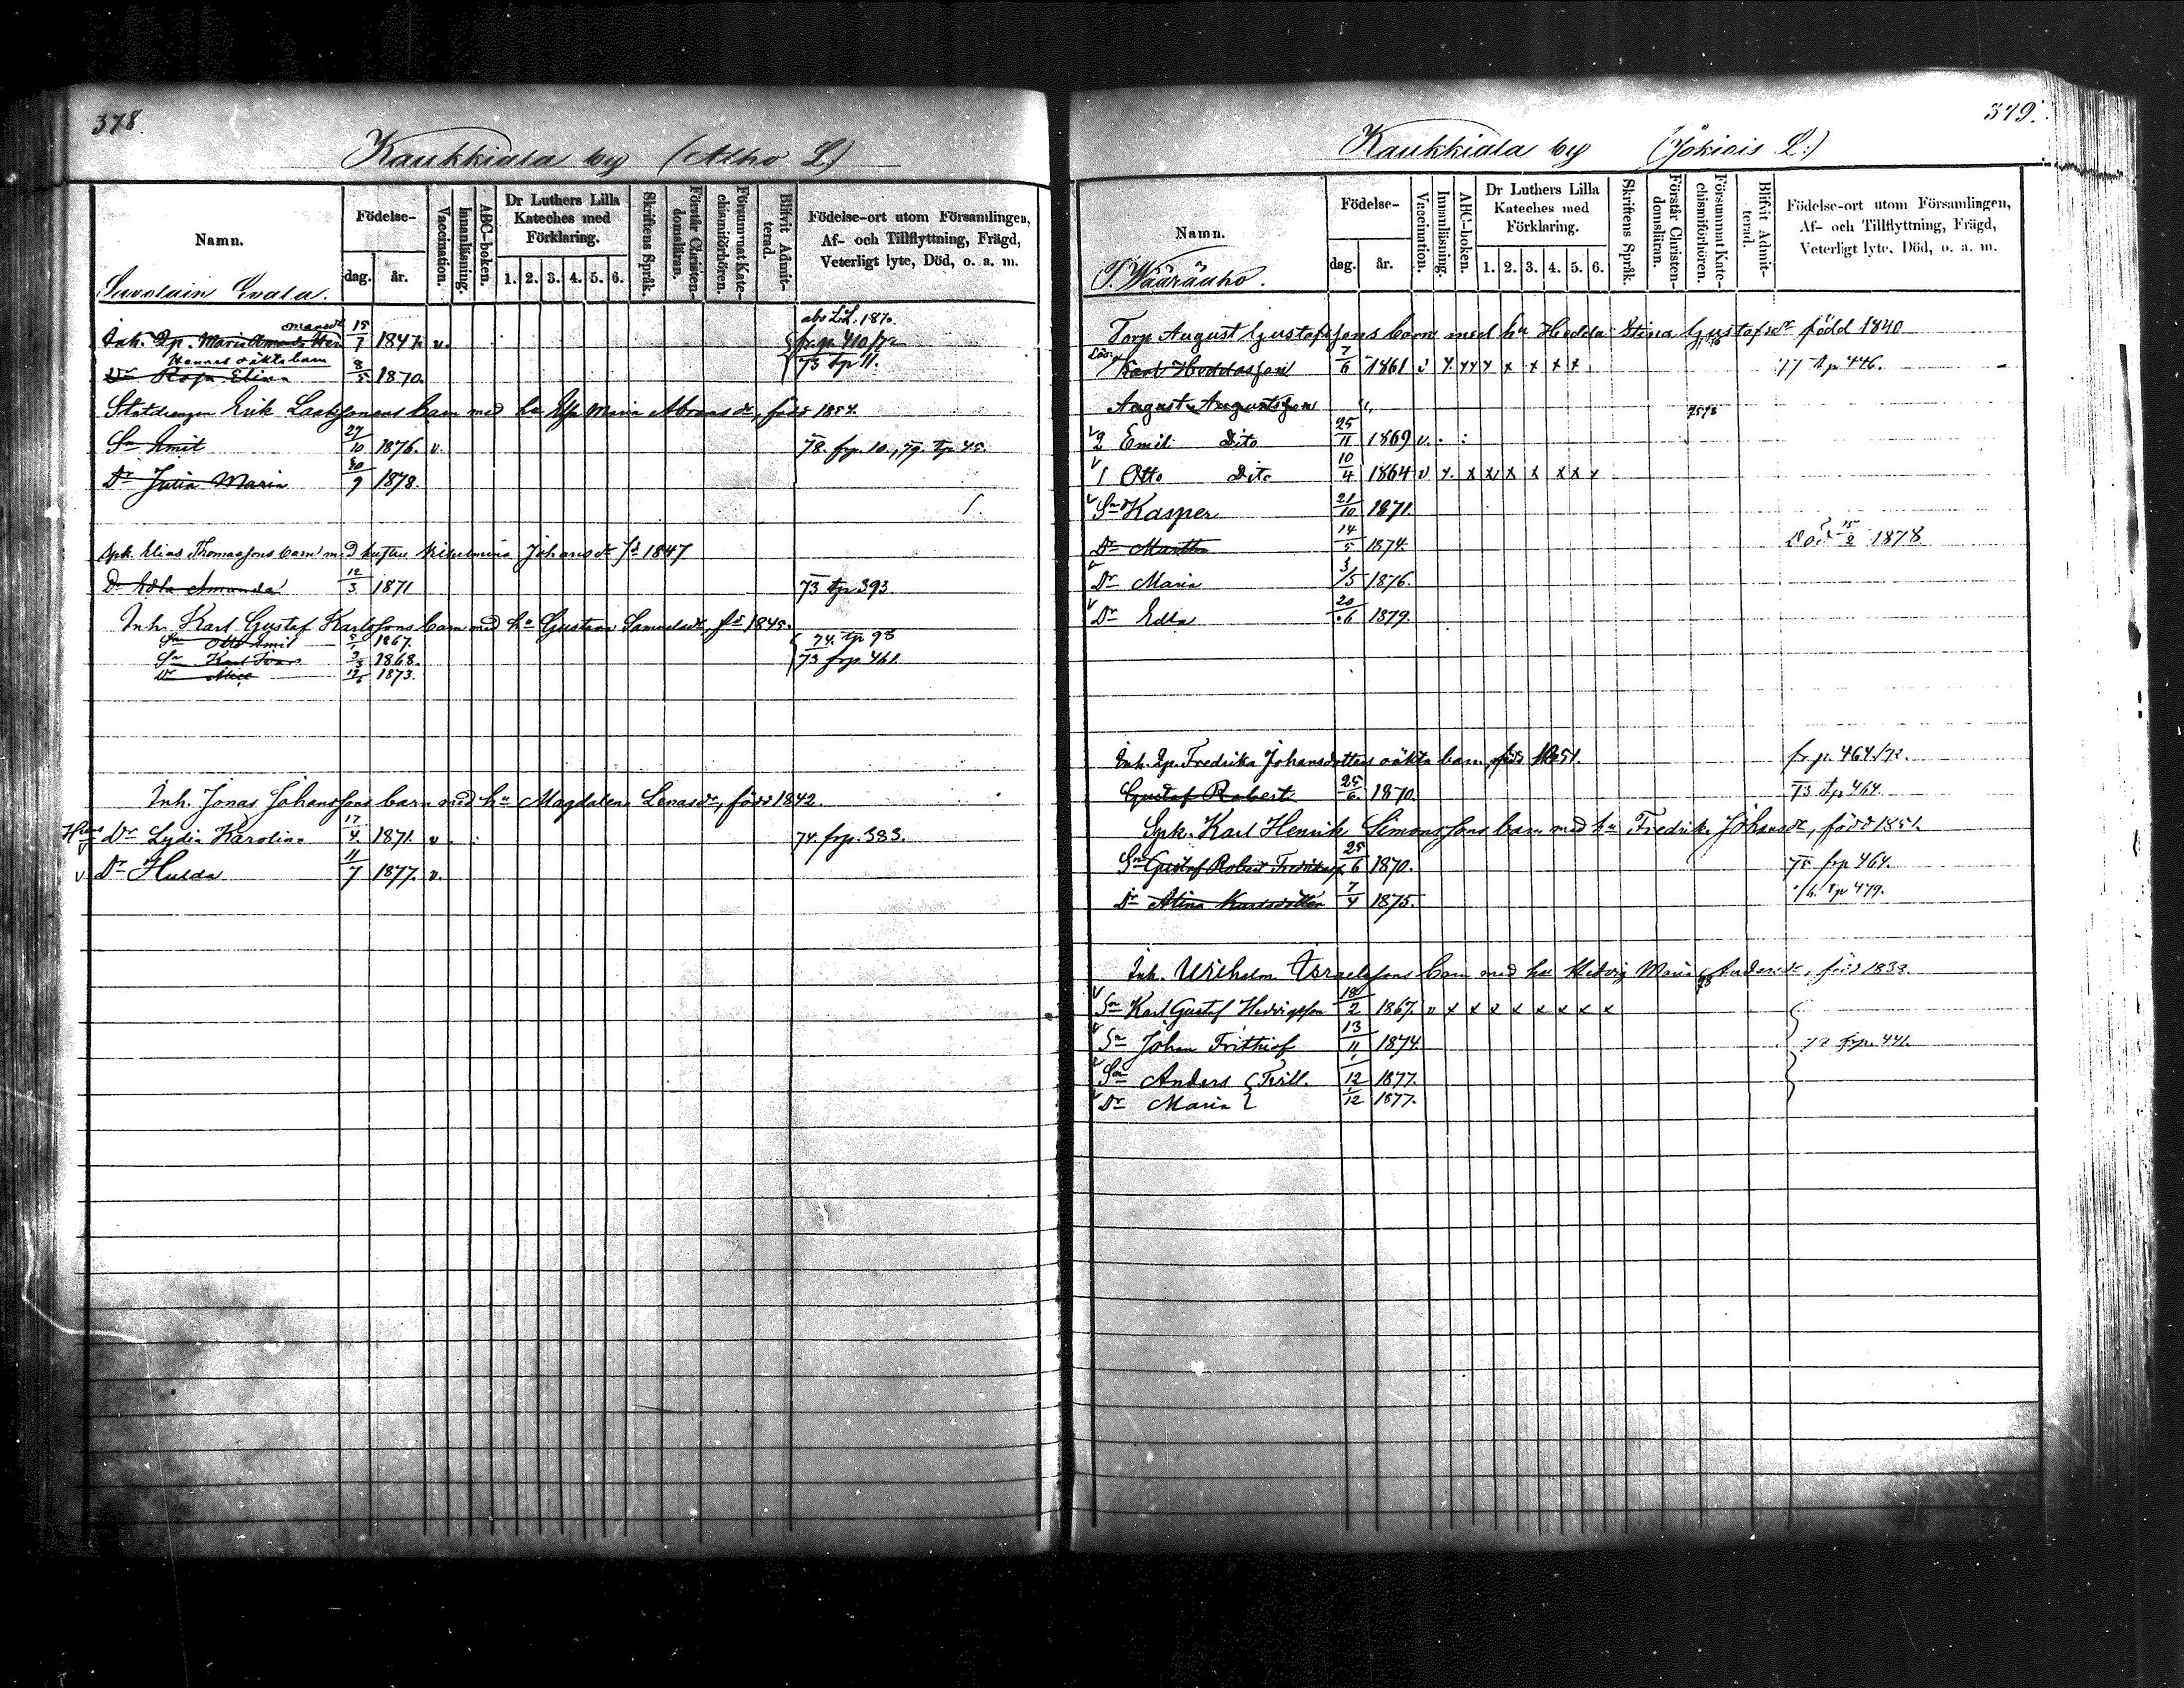 378.
Kaukkiala by (Alho L.)
Namn.
Födelse-
dag.
år.
Vaccination.
Innanläsning.
ABC-boken.
Dr Luthers Lilla
Kateches med
Förklaring.
1. 2. 3. 4. 5. 6.
Skriftens Språk.
Förstår Christen-
domsläran.
Försummat Kate-
chismiförhören.
Blifvit Admit-
terad.
Födelse-ort utom Församlingen,
Af- och Tillflyttning, Frägd,
Veterligt lyte, Död, o. a. m.
abs L.L. 1870.
Inh. Qp. Maria Amanda 15/7 1847. v. fr. p. 410/72
Hennes oäkta barn
Dr Rosa Elina 8/5 1870. 73 tp 11.
Statdrengen Erik barn med hu Maria Abramsdr, född 1854.
Sn Emil 27/10 1876. v. 78. frp. 10., 79. tp. 45.
Dr Julia Maria 30/9 1878.
Spk. Elias Thomassons barn med hustru Wilhelmina Johansdr fd 1847
Dr Edla Amanda 12/3 1871 73 tp 393
Inh. Karl Gustaf Karlssons barn med hu Gustava Samuelsdr, fd 1845.
Sn Otto Emil 1867. 74. tp 98
Sn Karl Ivar 1868. 73 frp 461.
Dr Alice 1873.
Inh. Jonas Johanssons barn med hu Magdalena Lenasdr, född 1842.
Dr Lydia Karolina 17/4. 1871. v. 74. frp. 383.
v Dr Hulda 11/7 1877. v.
379.
Kaukkiala by (Jokiois L:)
Namn.
Födelse-
dag.
år.
Vaccination.
Innanläsning.
ABC-boken.
Dr Luthers Lilla
Kateches med
Förklaring.
1. 2. 3. 4. 5. 6.
Skriftens Språk.
Förstår Christen-
domsläran.
Försummat Kate-
chismiförhören.
Blifvit Admit-
terad.
Födelse-ort utom Församlingen,
Af- och Tillflyttning, Frägd,
Veterligt lyte, Död, o. a. m.
T. Wääräaho.
Torp August Gustafssons barn med hu Hedda Stina Gustafsdr född 1840
Karl Heddasson 7/6 1861 77 tp 446.
August Augustsson
v 2 Emil Dito 25/11 1869 v.
v 1 Otto Dito 10/4 1864 v x x x x x x x x
v Sn Kasper 21/10 1871.
Dr Martha 14/5 1874. Död 15/2 1878.
v Dr Maria 3/5 1876.
v Dr Edla 20/6 1879.
Inh. Qp. Fredrika Johansdotters oäkta barn, född 1851. fr. p. 464/72.
Gustaf Robert 25/6. 1870. 73 tp 464.
Spk. Karl Henrik Simonssons barn med hu Fredrika Johansdr, född 1851.
Sn Gustaf Robert Fredrikass. 25/6 1870. 75 frp 464.
Dr Alina Karlsdotter 7/4 1875. tp 479.
Inh. Wilhelm Israelssons barn med hu Hedvig Maria Andersdr, född 1833.
v Sn Karl Gustaf Hedvigsson 18/2 1867. v x x x x x x x x
v Sn Johan Frithiof 13/11 1874. 72 frp. 441.
v Sn Anders { Tvill. 1/12 1877.
v Dr Maria 1/12 1877.